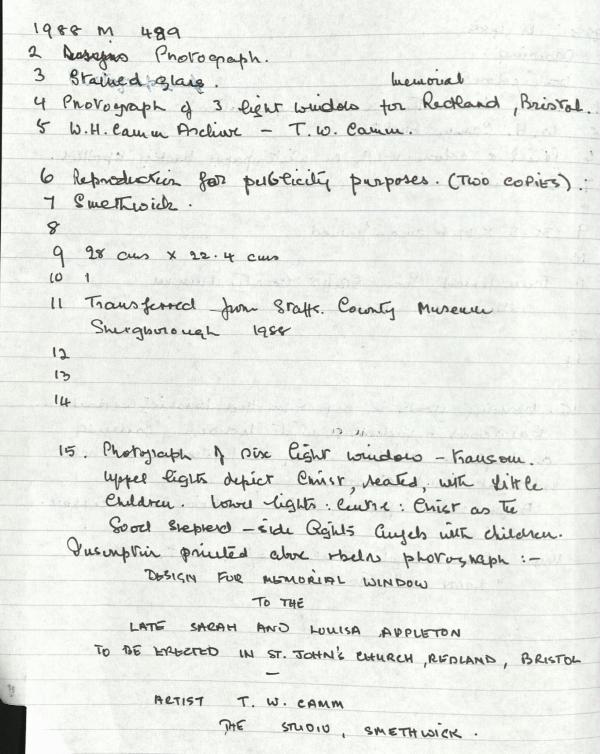 1988 M 489
2 Designs Photograph.
3 Stained glass.
memorial
4 Photograph of 3 light window for Redland, Bristol.
5 W.H. Camm Archive - T.W. Camm.
6 Reproduction for publicity purposes. (TWO COPIES).
7 Smethwick.
8
9 28 cms x 22.4 cms
10 1
11 Transferred from Staffs. County Museum
Shugborough 1988
12
13
14
15. Photograph of six light window - transom.
Upper lights depict Christ, seated, with little
children. Lower lights: Centre: Christ as the
Good Shepherd - side lights Angels with children.
Inscription printed above & below photograph :-
DESIGN FOR MEMORIAL WINDOW
TO THE
LATE SARAH AND LOUISA APPLETON
TO BE ERECTED IN ST. JOHN'S CHURCH, REDLAND, BRISTOL
—
ARTIST T. W. CAMM
THE STUDIO, SMETHWICK.